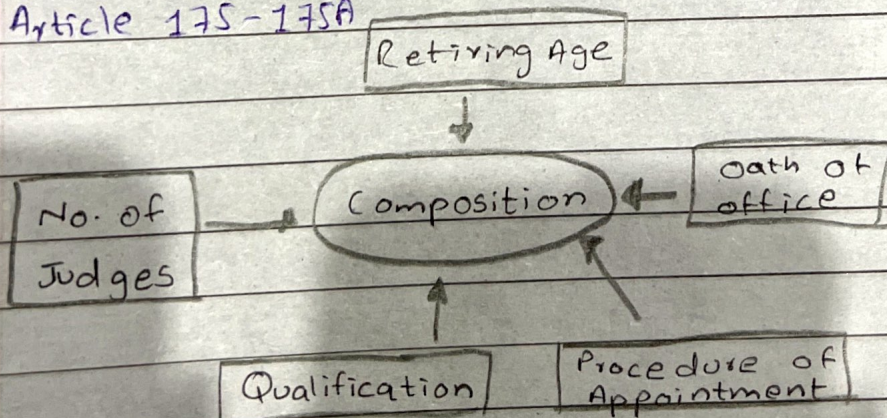 Article 175-175A
Retiring Age
No. of
Judges
Composition
Oath of
office
Qualification
Procedure of
Appointment